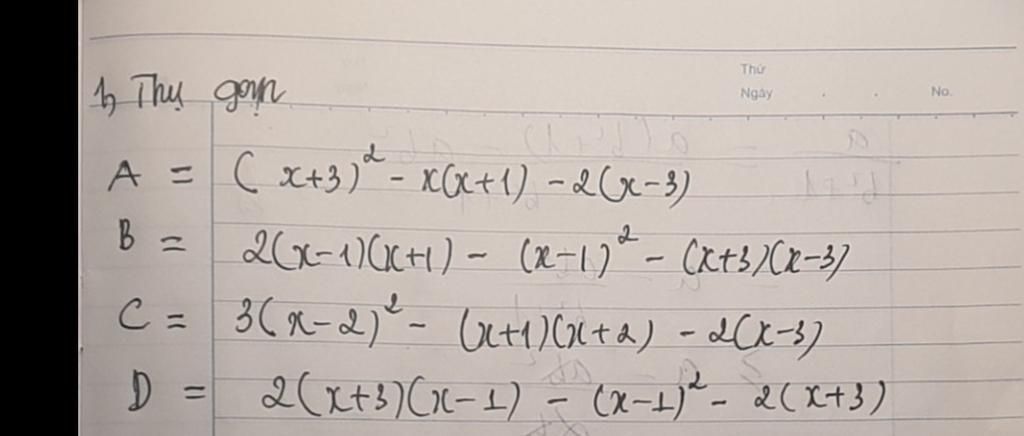 Thứ
Ngày . . No.
1, Thu gọn
A = (x+3)² - x(x+1) - 2(x-3)
B = 2(x-1)(x+1) - (x-1)² - (x+3)(x-3)
C = 3(x-2)² - (x+1)(x+2) - 2(x-3)
D = 2(x+3)(x-1) - (x-1)² - 2(x+3)